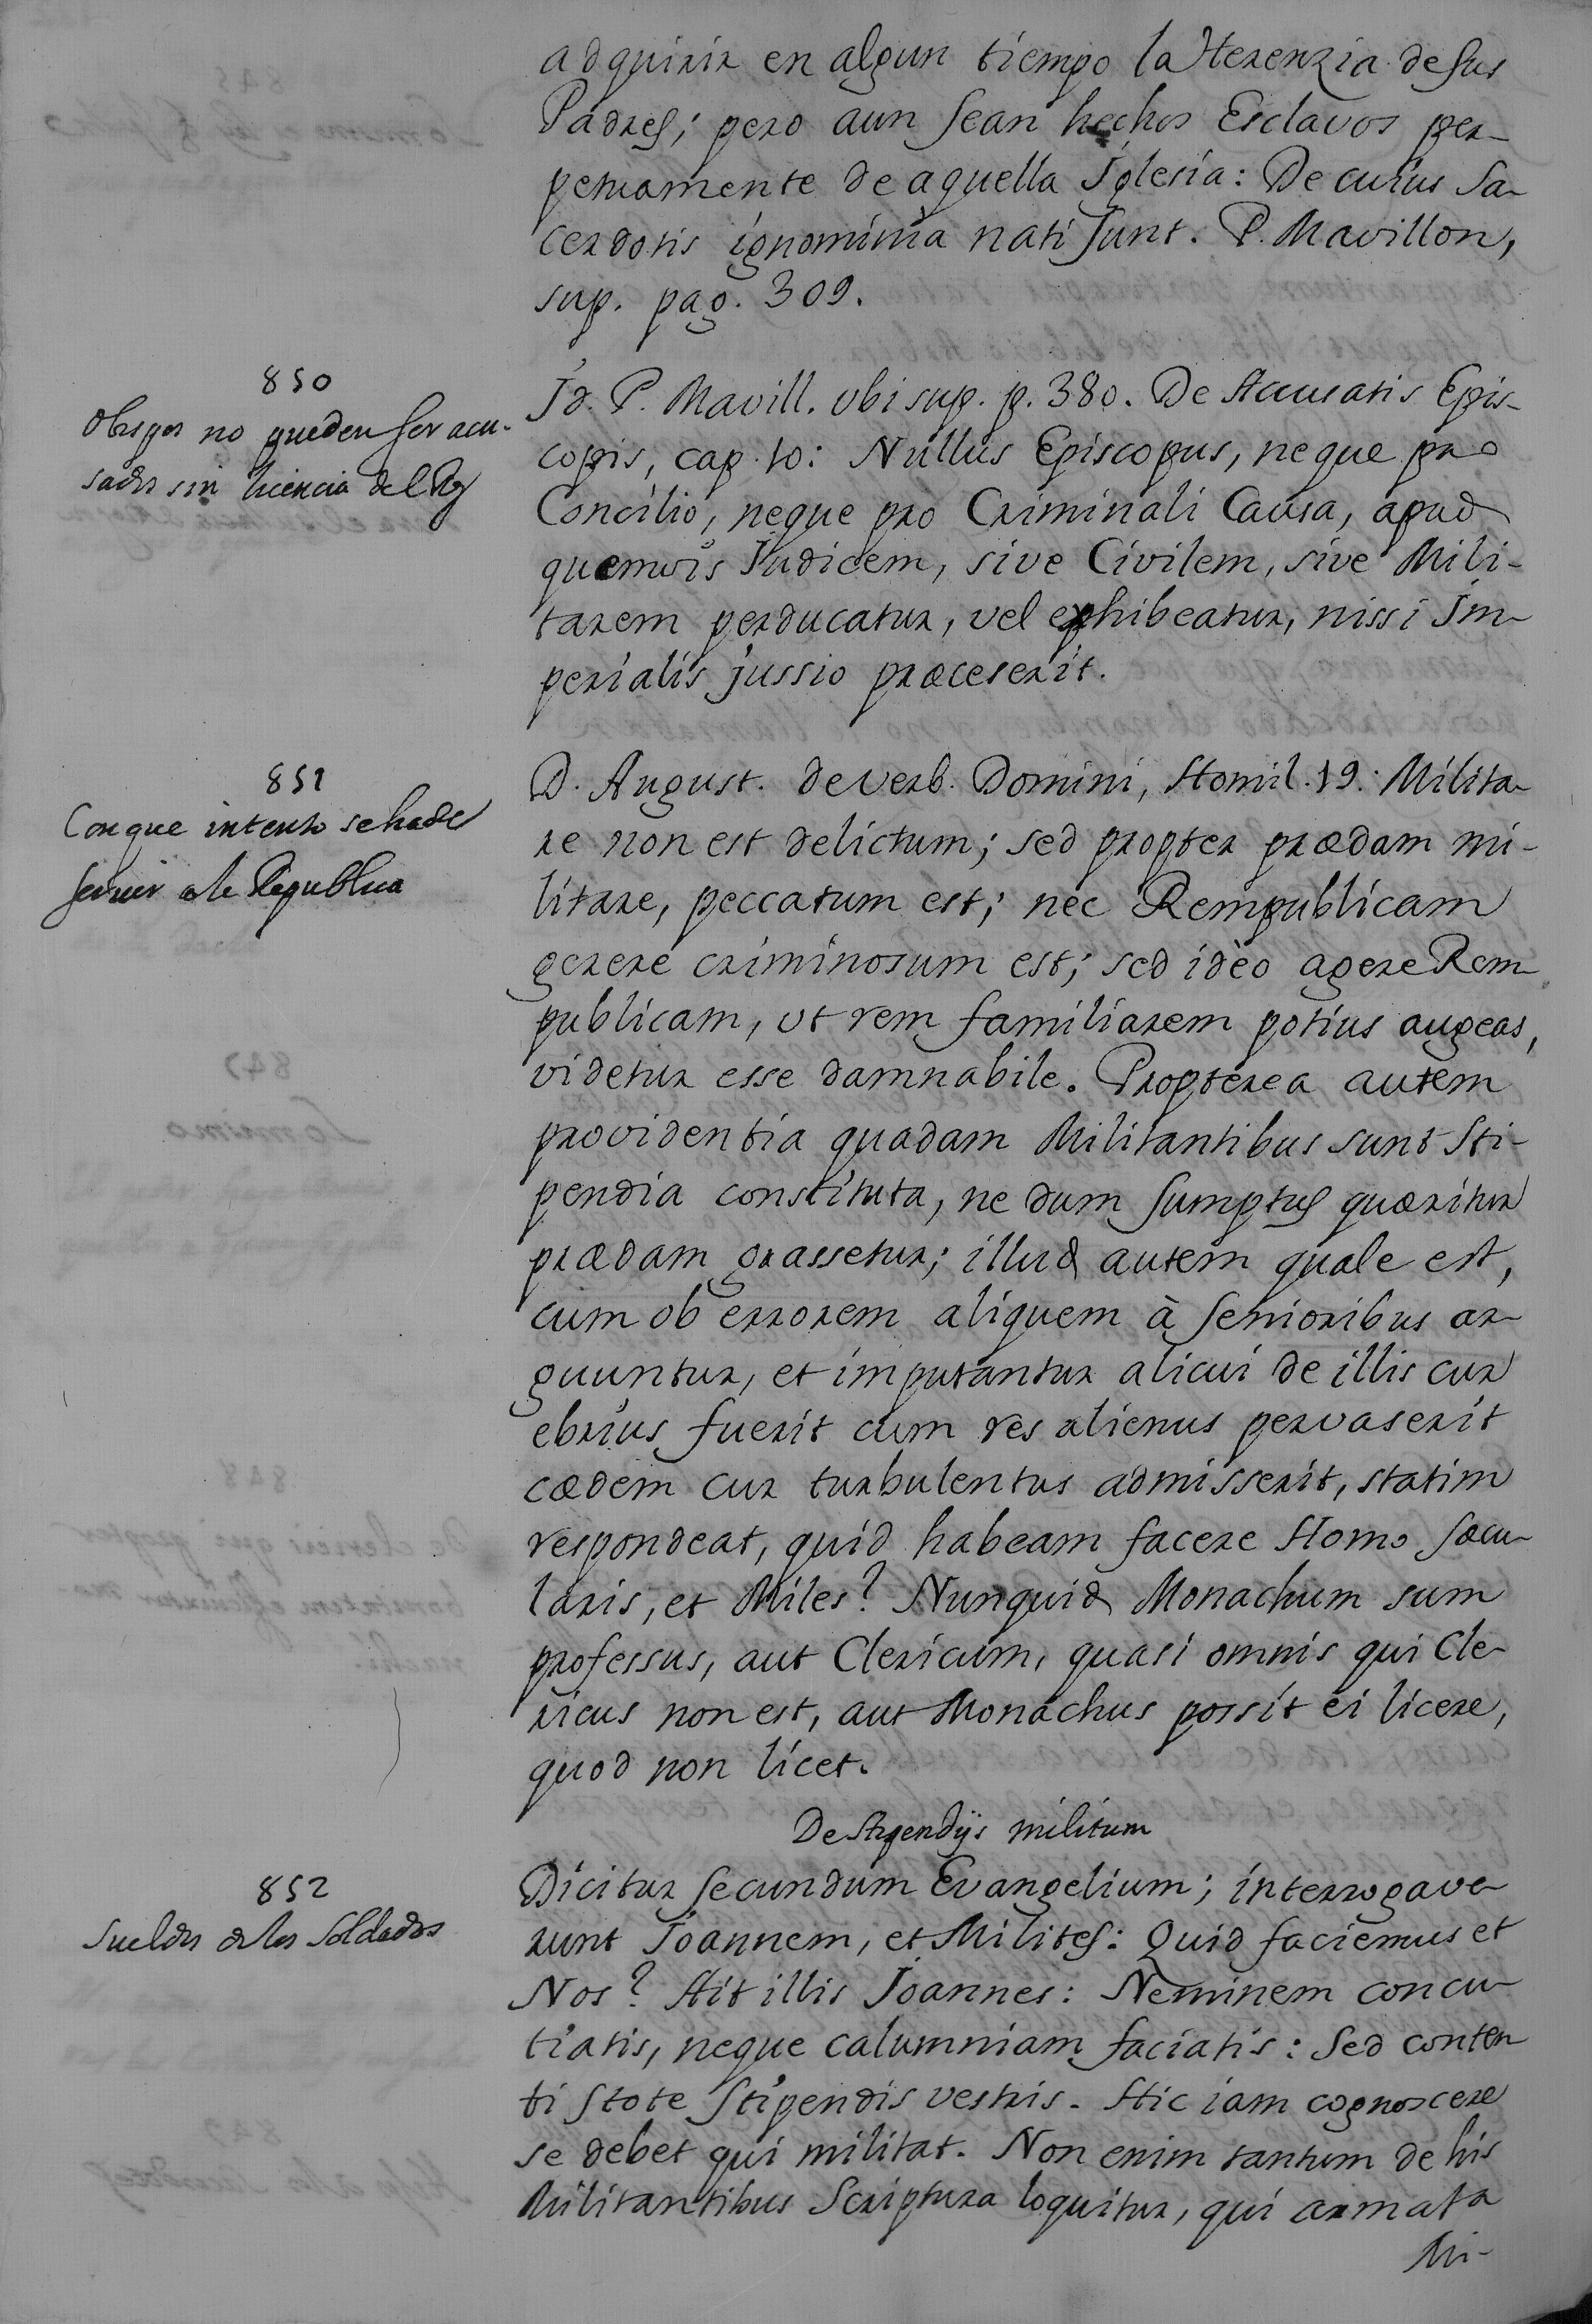 adquirir en algun tiempo la Herenzia de sus
Padres; pero aun sean hechos Esclavos per-
petuamente de aquella Iglesia: De cuius Sa-
cerdotis ignominia nati sunt. P. Mavillon,
sup. pag. 309.
850
Obispos no pueden ser acu-
sados sin licencia del Rey
Id. P. Mavill. ubi sup. p. 380. De Acusatis Epis-
copis, cap. 10: Nullus Episcopus, neque pro
Concilio, neque pro Criminali Causa, apud
quemvis Iudicem, sive Civilem, sive Mili-
tarem perducatur, vel exhibeatur, nissi Im-
perialis jussio præceserit.
851
Con que intento se ha de
servir a la Republica
D. August. de verb. Domini, Homil. 19: Milita-
re non est delictum; sed propter prædam mi-
litare, peccatum est; nec Rempublicam
gerere criminosum est; sed idèo agere Rem-
publicam, ut rem familiarem potius augeas,
videtur esse damnabile. Propterea autem
providentia quadam Militantibus sunt Sti-
pendia constituta, ne dum sumptus quæritur
prædam grassetur; illud autem quale est,
cum ob errorem aliquem à Senioribus ar-
guuntur, et imputantur alicui de illis cur
ebrius fuerit cum res alienus pervaserit
cædem cur turbulentus admisserit, statim
respondeat, quid habeam facere Homo sæcu-
laris, et Miles? Nunquid Monachum sum
professus, aut Clericum, quasi omnis qui Cle-
ricus non est, aut Monachus possit ei licere,
quod non licet.
De Stipendijs militum
852
Sueldos de los Soldados
Dicitur secundum Evangelium; interrogave-
runt Joannem, et Milites: Quid faciemus et
Nos? Ait illis Joannes: Neminem concu-
tiatis, neque calumniam faciatis: Sed conten
ti stote Stipendis vestris. Hic iam cognoscere
se debet qui militat. Non enim tantum de his
Militantibus Scriptura loquitur, qui armata
Mi-